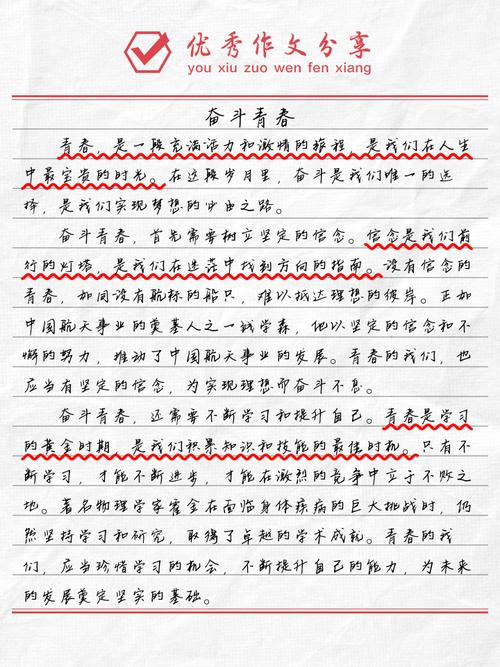 优秀作文分享
you xiu zuo wen fen xiang
奋斗青春
青春，是一段充满活力和激情的旅程，是我们在人生
中最宝贵的时光。在这段岁月里，奋斗是我们唯一的选
择，是我们实现梦想的必由之路。
奋斗青春，首先需要树立坚定的信念。信念是我们前
行的灯塔，是我们在迷茫中找到方向的指南。没有信念的
青春，如同没有航标的船只，难以抵达理想的彼岸。正如
中国航天事业的奠基人之一钱学森，他以坚定的信念和不
懈的努力，推动了中国航天事业的发展。青春的我们，也
应当有坚定的信念，为实现理想而奋斗不息。
奋斗青春，还需要不断学习和提升自己。青春是学习
的黄金时期，是我们积累知识和技能的最佳时机。只有不
断学习，才能不断进步，才能在激烈的竞争中立于不败之
地。著名物理学家霍金在面临身体疾病的巨大挑战时，仍
然坚持学习和研究，取得了卓越的学术成就。青春的我
们，应当珍惜学习的机会，不断提升自己的能力，为未来
的发展奠定坚实的基础。